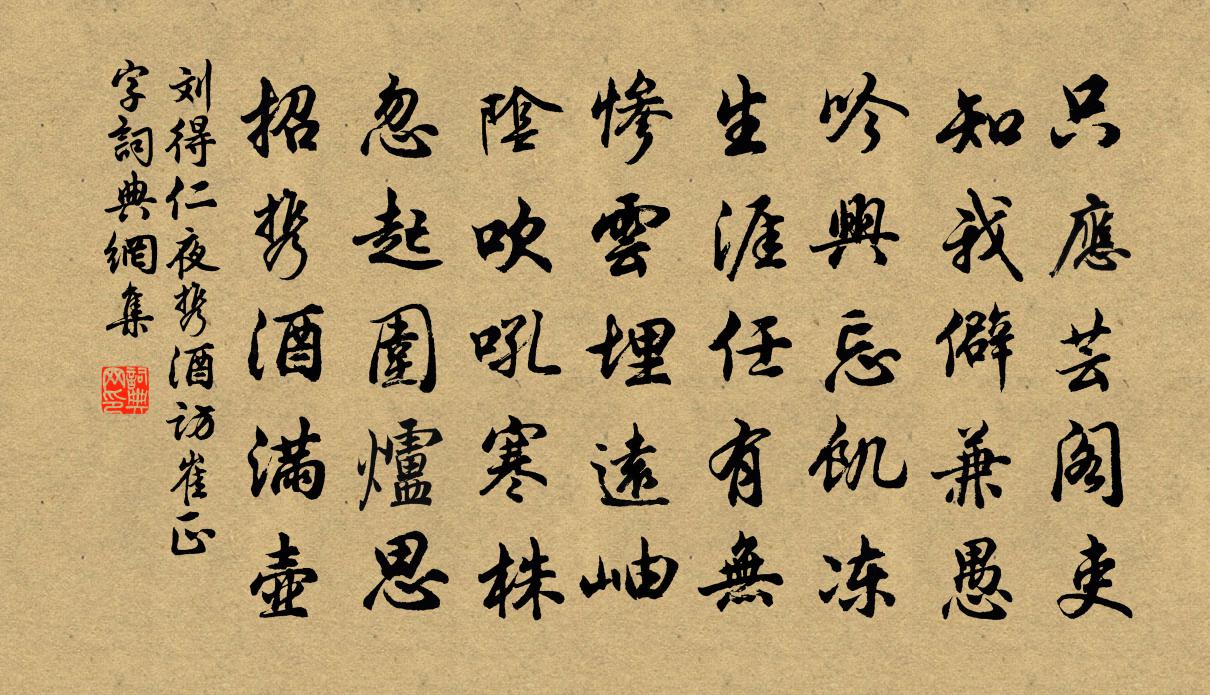 只應芸閣吏
知我僻兼愚
吟興忘飢凍
生涯任有無
慘雲埋遠岫
陰吹吼寒株
忽起圍爐思
招携酒满壺
刘得仁夜携酒访崔正
字詞典網集
詞典
网印